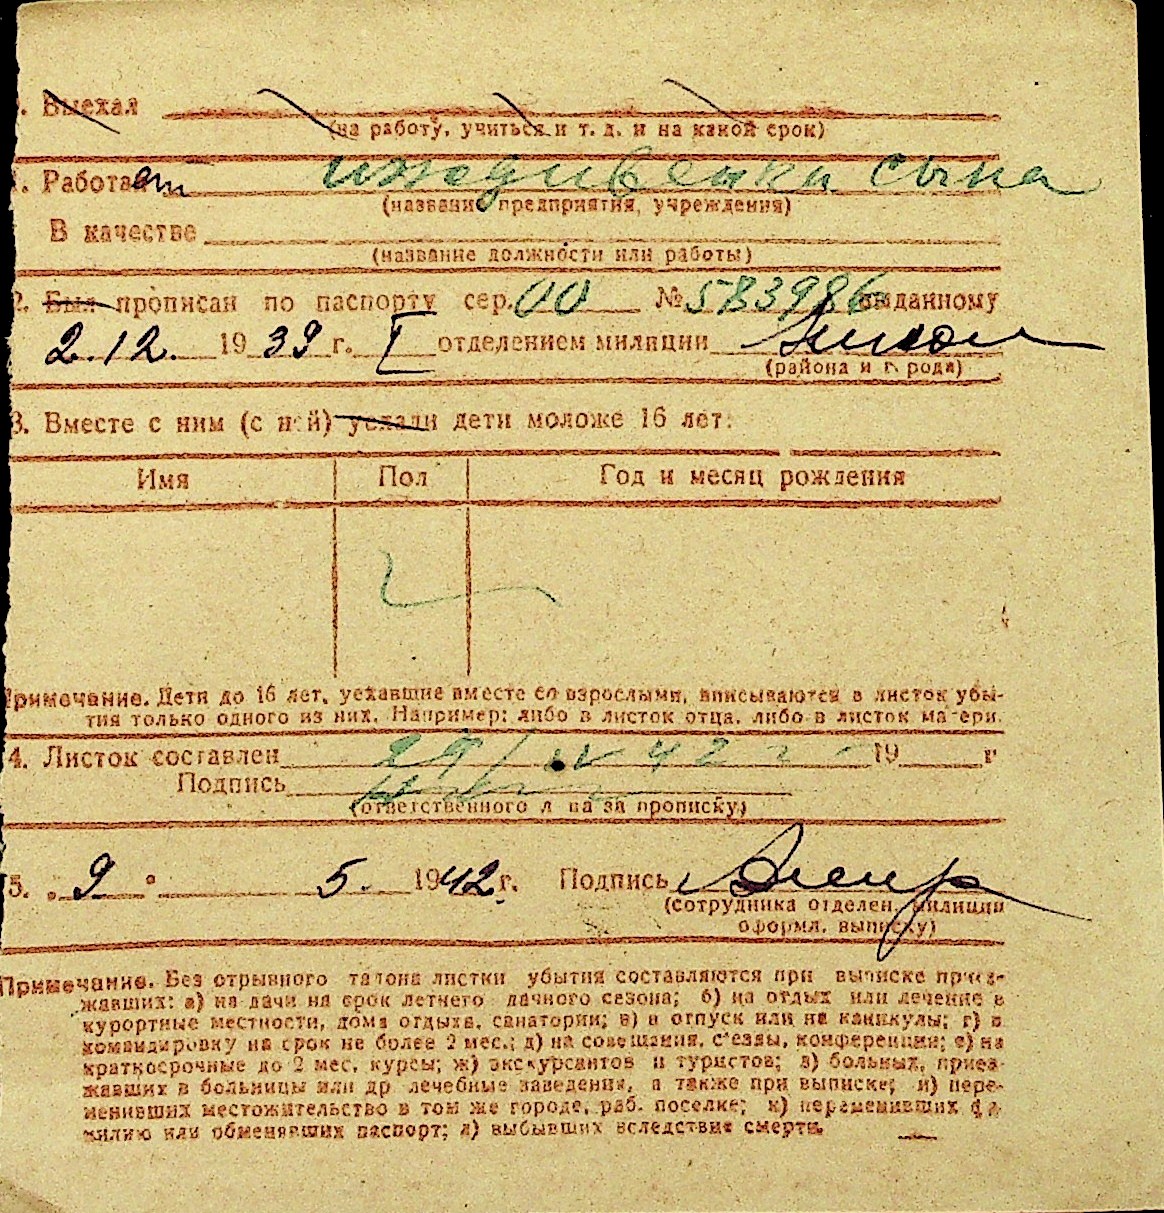 . Выехал
(на работу, учиться и т. д. и на какой срок)
1. Работает иждивенка сына
(название предприятия, учреждения)
В качестве
(название должности или работы)
2. Был прописан по паспорту сер. ОО № 583986 выданному
2.12. 1939 г. I отделением милиции
(района и города)
3. Вместе с ним (с ней) уехали дети моложе 16 лет:
Имя Пол Год и месяц рождения
Примечание. Дети до 16 лет, уехавшие вместе со взрослыми, вписываются в листок убы-
тия только одного из них. Например: либо в листок отца, либо в листок матери.
4. Листок составлен 29/IV 42 г 19 г
Подпись
(ответственного лица за прописку)
5. „9" 5. 1942 г. Подпись
(сотрудника отделен. милиции
оформл. выписку)
Примечание. Без отрывного талона листки убытия составляются при выписке приез-
жавших: а) на дачи на срок летнего дачного сезона; б) на отдых или лечение в
курортные местности, дома отдыха, санатории; в) в отпуск или на каникулы; г) в
командировку на срок не более 2 мес.; д) на совещания, с'езды, конференции; е) на
краткосрочные до 2 мес. курсы; ж) экскурсантов и туристов; з) больных, приез-
жавших в больницы или др лечебные заведения, а также при выписке; и) пере-
менивших местожительство в том же городе, раб. поселке; к) переменивших фа-
милию или обменявших паспорт; л) выбывших вследствие смерти.